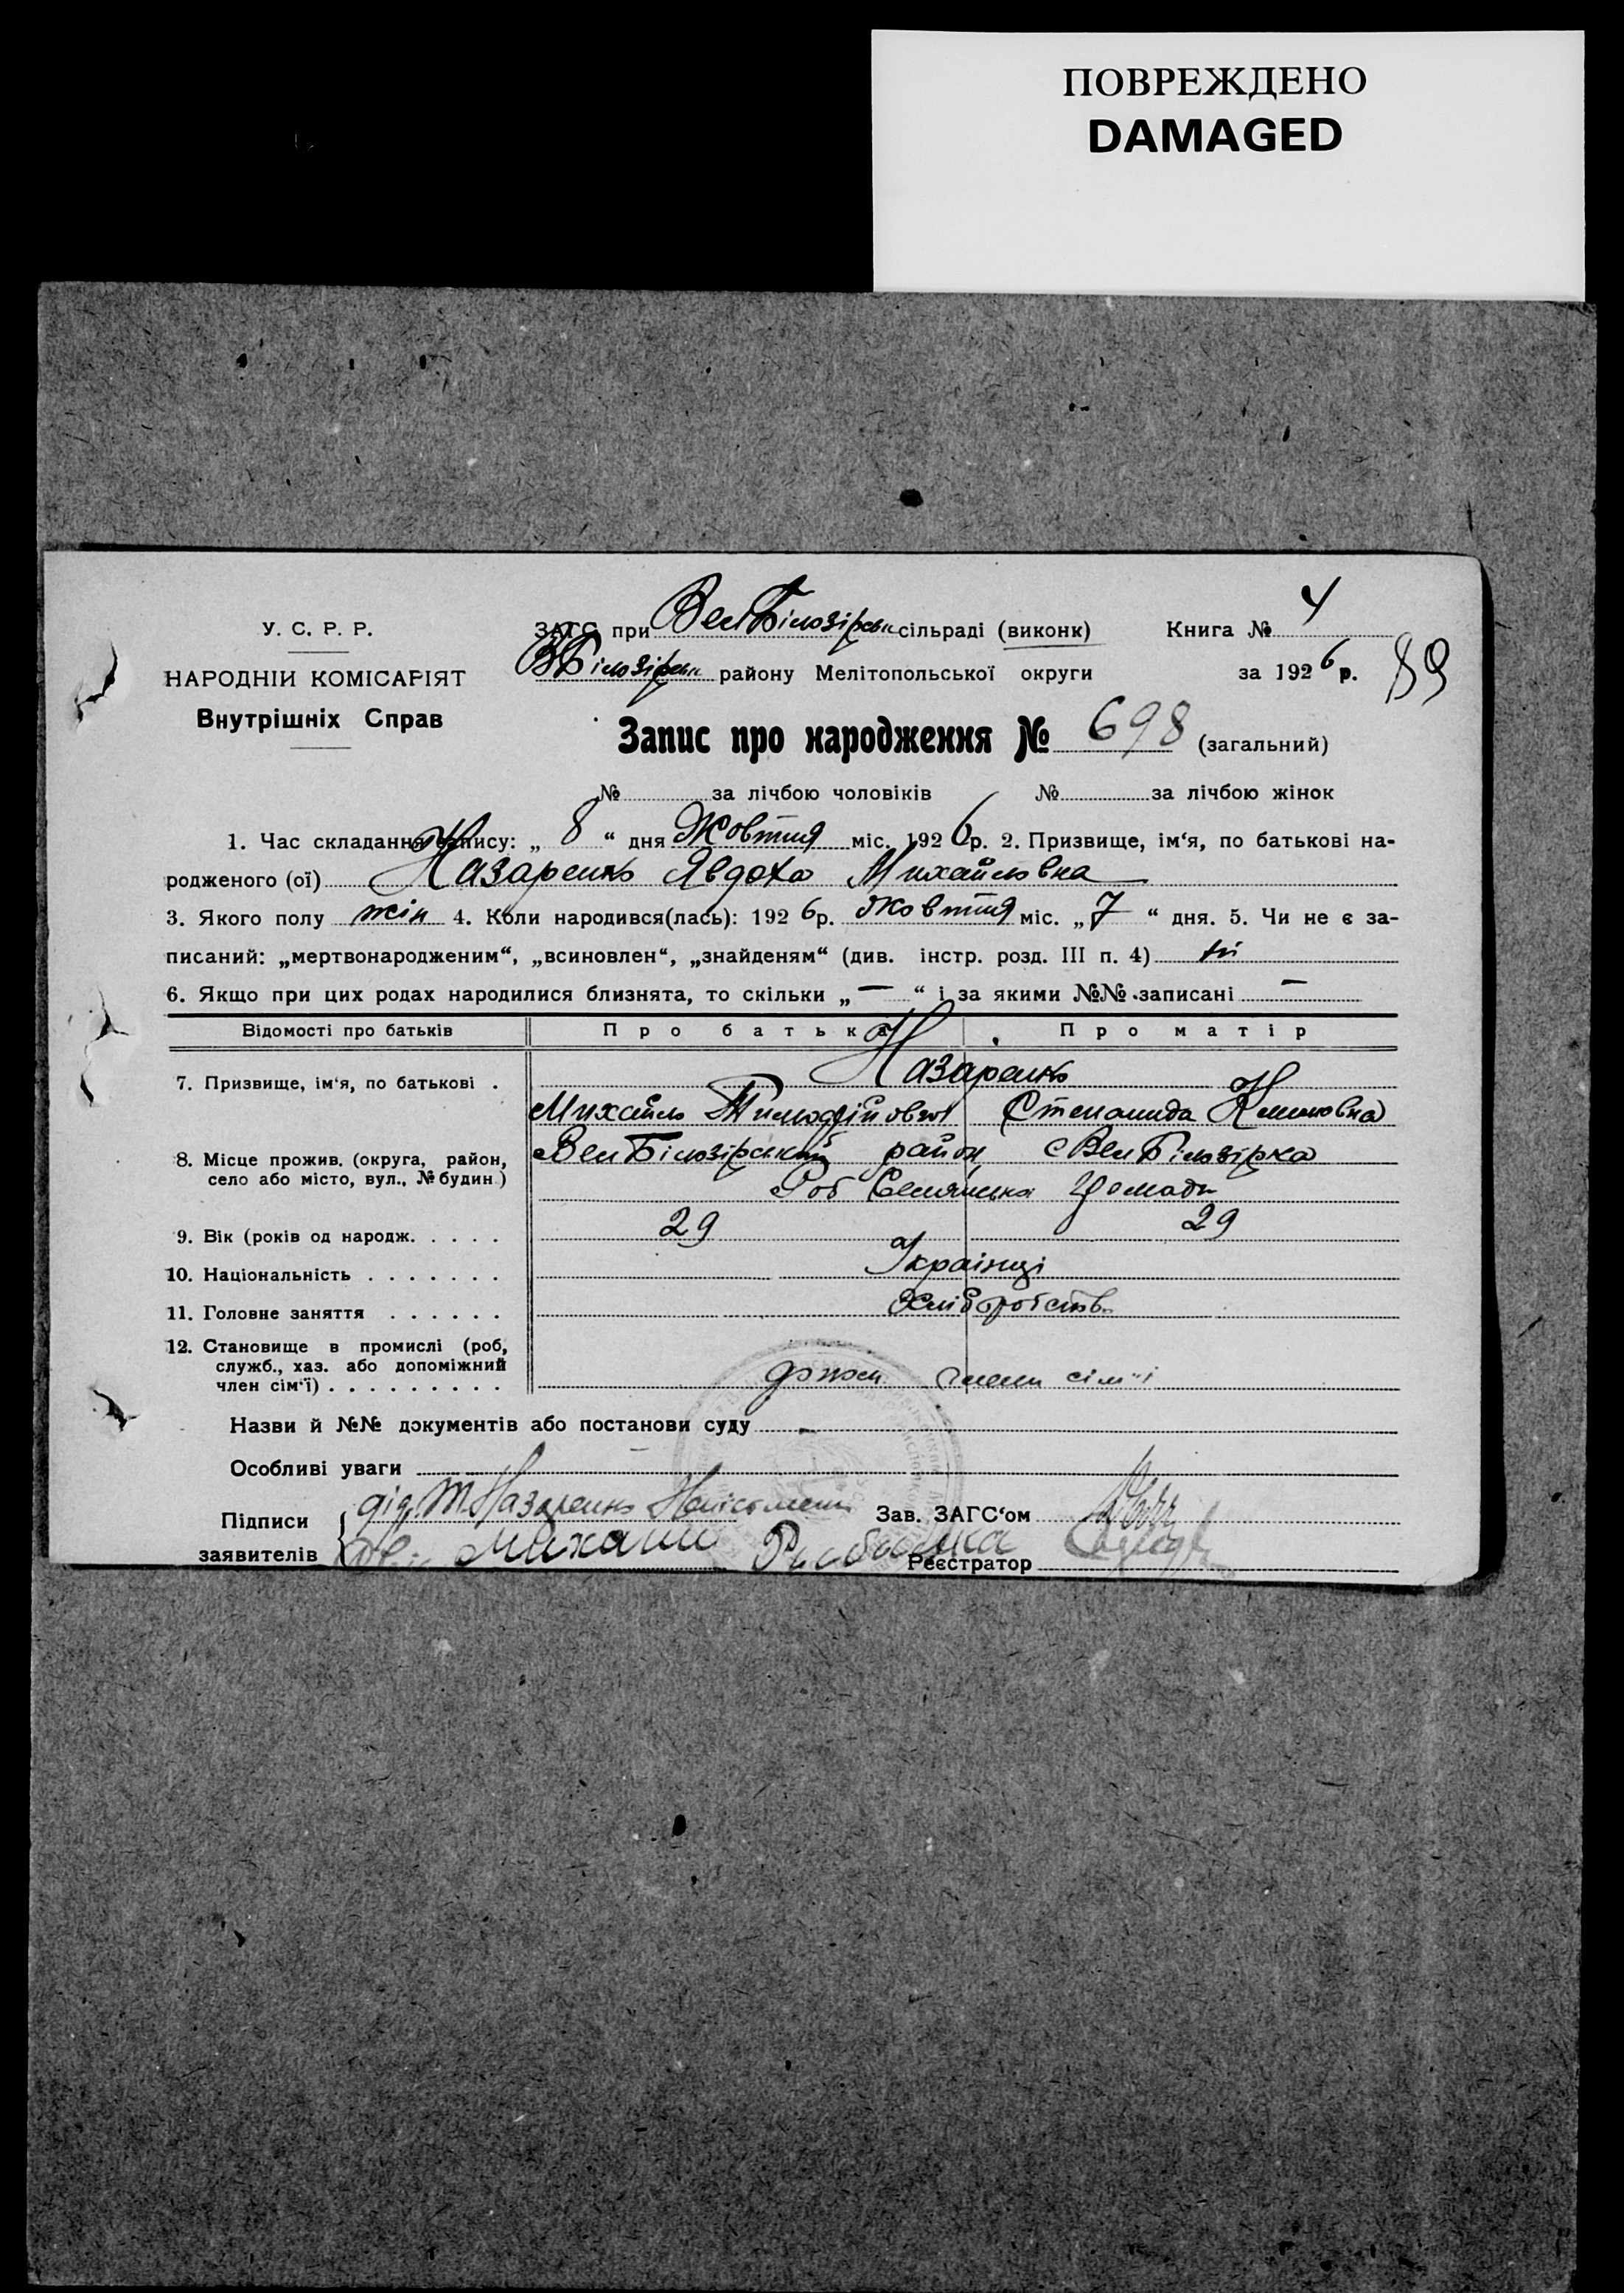 ПОВРЕЖДЕНО
DAMAGED
У. С. Р. Р.
НАРОДНІЙ КОМІСАРІЯТ
Внутрішніх Справ
ЗАГС при ВелБілозірськ сільраді (виконк)
ВБілозірськ району Мелітопольської округи
Книга № 4
за 1926 р.
89
Запис про народження № 698 (загальний)
№ за лічбою чоловіків № за лічбою жінок
1. Час складання запису: „ 8 “ дня Жовтня міс. 1926 р. 2. Призвище, ім‘я, по батькові на-
родженого (ої) Назаренко Явдоха Михайловна
3. Якого полу жін 4. Коли народився(лась): 1926 р. Жовтня міс. „ 7 “ дня. 5. Чи не є за-
писаний: „мертвонародженим“, „всиновлен“, „знайденям“ (див. інстр. розд. III п. 4) ні
6. Якщо при цих родах народилися близнята, то скільки „ — “ і за якими №№ записані —
Відомості про батьків Про батька Про матір
7. Призвище, ім‘я, по батькові . Назаренко
Михайло Тимофійович Степанида Климовна
8. Місце прожив. (округа, район, ВелБілозірський район с ВелБілозірка
село або місто, вул., № будин.) Роб Селянська Громада
9. Вік (років од народж. . . . . 29 29
10. Національність . . . . . . . Українці
11. Головне заняття . . . . . . Хліборобств
12. Становище в промислі (роб,
служб., хаз. або допоміжний
член сім‘ї) . . . . . . . . . члени сім"ї
Назви й №№ документів або постанови суду —
Особливі уваги
Підписи
заявителів
дід Т. Назаренко Неписьмен
Михайло
Зав. ЗАГС‘ом
Реєстратор